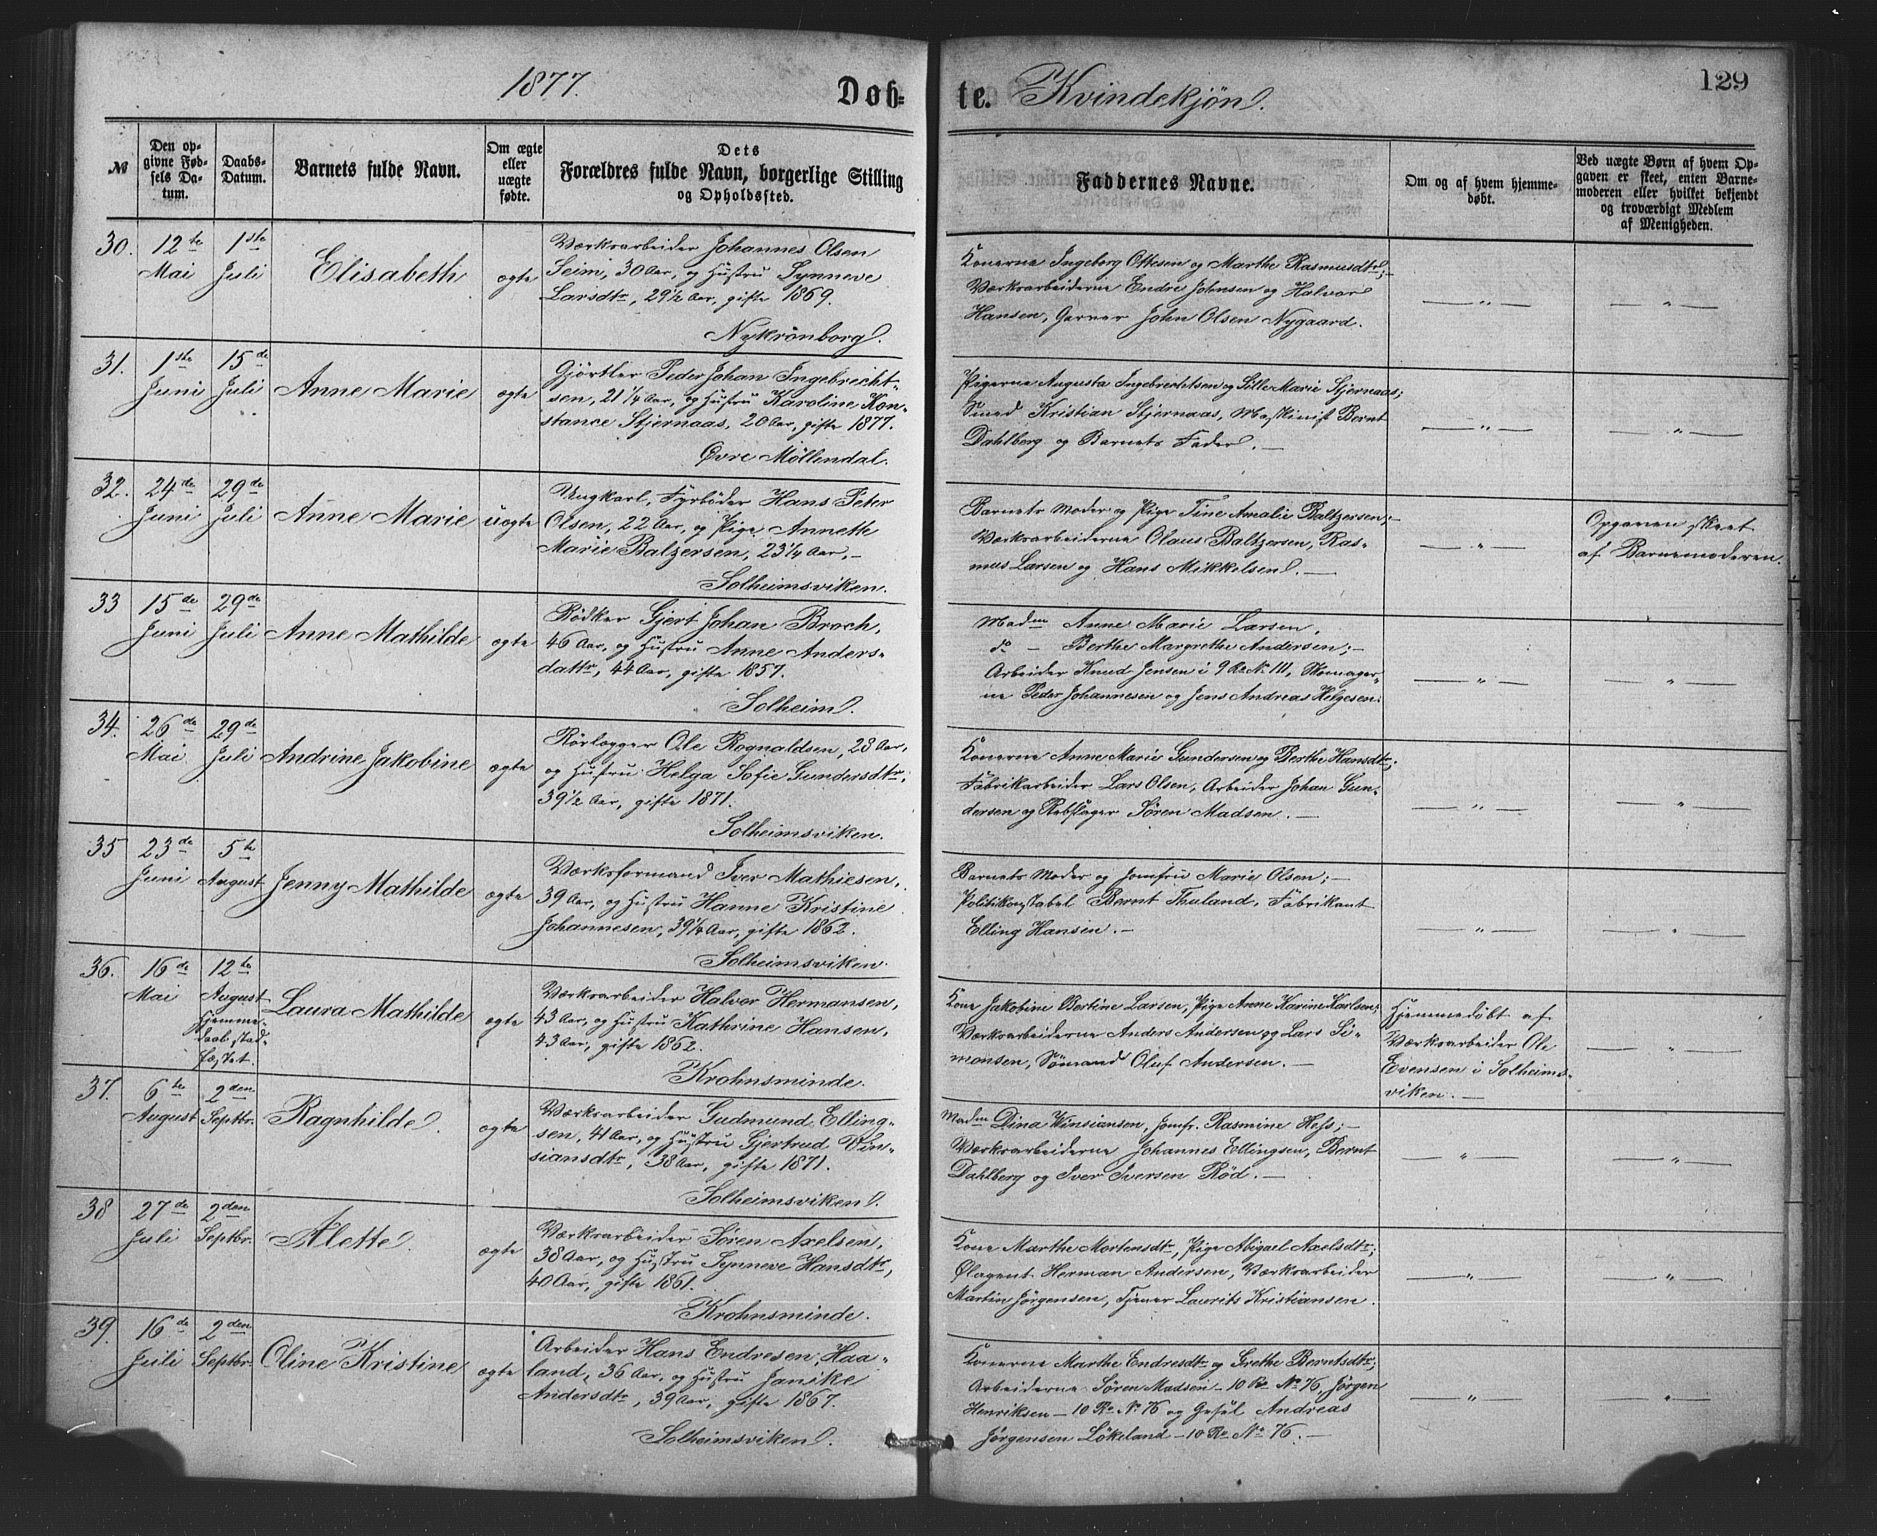 1877.
Døb-
te. Kvindekjøn.
129
№
Den op-
givne Fød-
sels Da-
tum.
Daabs-
Datum.
Barnets fulde Navn.
Om ægte
eller
uægte
fødte.
Dets
Forældres fulde Navn, borgerlige Stilling
og Opholdssted.
Faddernes Navne.
Om og af hvem hjemme-
døbt.
Ved uægte Børn af hvem Op-
gaven er skeet, enten Barne-
moderen eller hvilket bekjendt
og troværdigt Medlem
af Menigheden.
30.
12te
Mai
1ste
Juli
Elisabeth
ægte
Værksarbeider Johannes Olsen
Seim, 30 Aar, og Hustru Synneve
Larsdtr, 29½ Aar, gifte 1869.
Nykrønborg.
Konerne Ingeborg Ottesen og Marthe Rasmusdtr;-
Værksarbeiderne Endre Johnsen og Halvor
Hansen, Garver John Olsen Nygaard.
— " —
— " —
31.
1ste
Juni
15de
Juli
Anne Marie
ægte
Gjørtler Peder Johan Ingebrecht-
sen, 21¼ Aar, og Hustru Karoline Kon-
stance Stjernaas, 20 Aar, gifte 1877.
Øvre Møllendal.
Pigerne Augusta Ingebrechtsen og Sille Marie Stjernaas;
Smed Kristian Stjernaas, Maskinist Bernt
Dahlberg og Barnets Fader. —
— " —
— " —
32.
24de
Juni
29de
Juli
Anne Marie
uægte
Ungkarl, Fyrbøder Hans Peter
Olsen, 22 Aar, og Pige Annethe
Marie Baltzersen, 23¼ Aar, —
Solheimsviken.
Barnets Moder og Pige Tine Amalie Baltzersen;-
Værksarbeiderne Olaus Baltzersen, Ras-
mus Larsen og Hans Mikkelsen. —
— " —
Opgaven skeet
af Barnemoderen.
33
15de
Juni
29de
Juli
Anne Mathilde
ægte
Bødker Gjert Johan Broch,
46 Aar, og Hustru Anne Anders-
dattr, 44 Aar, gifte 1857.
Solheim.
Madm Anne Marie Larsen,
do — Berthe Margrethe Andersen; —
Arbeider Knud Jensen i 9 Rd. N. 111, Skomager-
ne Peder Johannesen og Jens Andreas Helgesen.
— " —
— " —
34.
26de
Mai
29de
Juli
Andrine Jakobine
ægte
Rørlægger Ole Rognaldsen, 28 Aar,
og Hustru Helga Sofie Gundersdtr,
39½ Aar, gifte 1871.
Solheimsviken.
Konerne Anne Marie Gundersen og Berthe Hansdtr;
Fabrikarbeider Lars Olsen, Arbeider Johan Gun-
dersen og Rebslager Søren Madsen. —
— " —
— " —
35
23de
Juni
5te
August
Jenny Mathilde
ægte
Værksformand Iver Mathiesen,
39 Aar, og Hustru Hanne Kristine
Johannesen, 39¼ Aar, gifte 1862.
Solheimsviken.
Barnets Moder og Jomfru Marie Olsen; —
Politikonstabel Bernt Thuland, Fabrikant
Elling Hansen. —
— " —
— " —
36.
16de
Mai
12te
August
Hjemme-
daab stad-
fæstet.
Laura Mathilde
ægte
Værksarbeider Halvor Hermansen,
43 Aar, og Hustru Kathrine Hansen,
43 Aar, gifte 1862.
Krohnsminde.
Kone Jakobine Bertine Larsen, Pige Anne Karine Karlsen;
Værksarbeiderne Anders Andersen og Lars Si-
monsen, Sømand Oluf Andersen. —
Hjemmedøbt af
Værksarbeider Ole
Evensen i Solheims-
viken. —
— " —
37.
6te
August
2den
Septbr.
Ragnhilde.
ægte
Værksarbeider Gudmund Elling-
sen, 41 Aar, og Hustru Gjertrud Vin-
siansdtr, 38 Aar, gifte 1871.
Solheimsviken.
Madm Dina Winsiansen, Jomfr. Rasmine Hess; —
Værksarbeiderne Johannes Ellingsen, Bernt
Dahlberg og Iver Iversen Rød. —
— " —
— " —
38
27de
Juli
2den
Septbr.
Alette.
ægte
Værksarbeider Søren Axelsen,
38 Aar, og Hustru Synneve Hansdtr,
40 Aar, gifte 1861.
Krohnsminde.
Kone Marthe Mortensdtr, Pige Abigael Axelsdtr;
Ølagent Herman Andersen, Værksarbeider
Martin Jørgensen, Tjener Laurits Kristiansen.
— " —
— " —
39.
16de
Juli
2den
Septbr.
Oline Kristine
ægte
Arbeider Hans Endresen Haa-
land, 36 Aar, og Hustru Janike
Andersdtr, 39 Aar, gifte 1867.
Solheimsviken.
Konerne Marthe Endresdtr og Grethe Berntsdtr;
Arbeiderne Søren Madsen — 10 Rd No 76, Jørgen
Henriksen — 10 Rd No 76 og Andreas
Jørgensen Løkeland — 10 Rd No 76. —
— " —
— " —